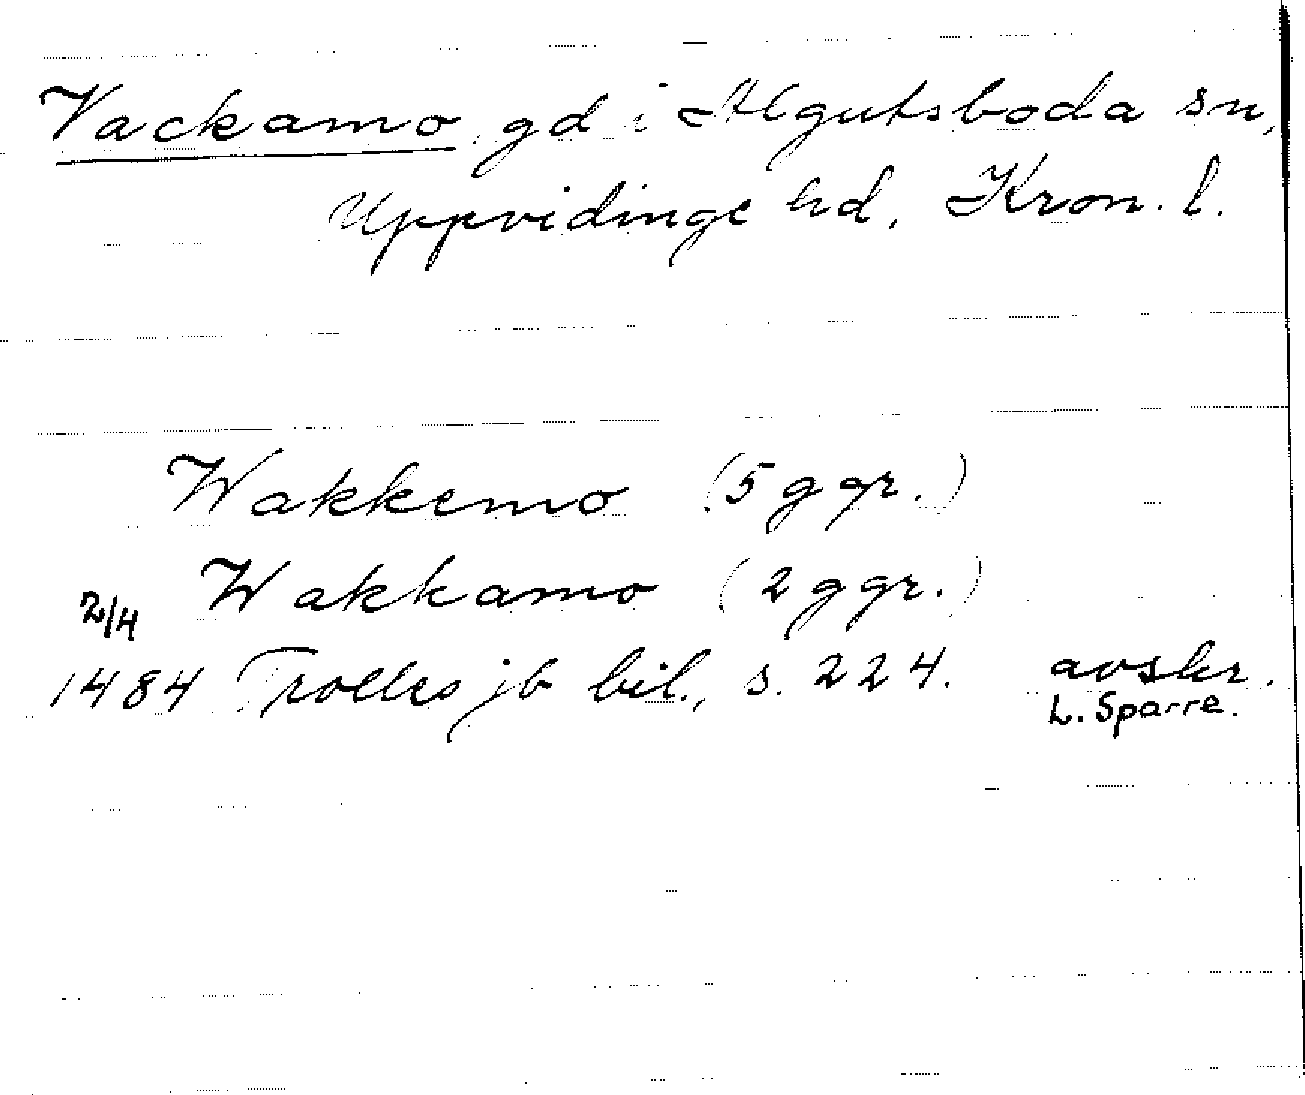 Vackamo gd i Algutsboda sn,
Uppvidinge hd, Kron. l.
Wakkemo (5 ggr.)
Wakkamo (2 ggr.)
2/4
1484 Trolles jb bil., s. 224. avskr.
L. Sparre.